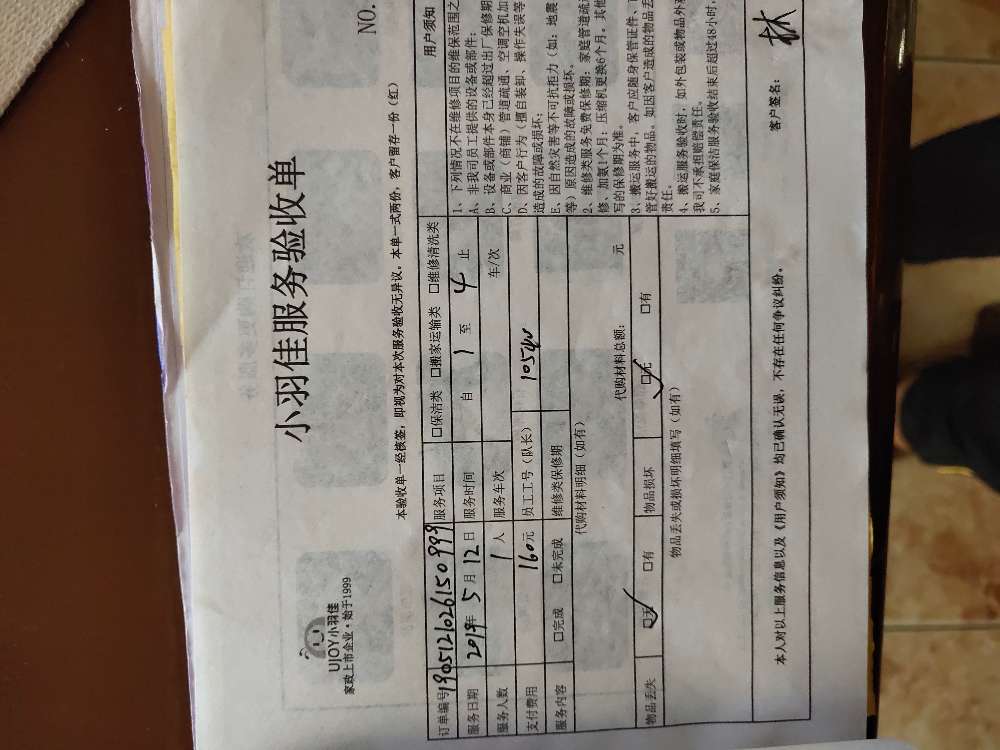 UJOY小羽佳
家政上市企业·始于1999
小羽佳服务验收单
NO.
本验收单一经核签，即视为对本次服务验收无异议。本单一式两份，客户留存一份（红）
订单编号 1905121026150999 服务项目 □保洁类 □搬家运输类 □维修清洗类 用户须知
服务日期 2019年 5 月 12 日 服务时间 自 1 至 4 止
服务人数 1 人 服务车次 车/次
支付费用 160元 员工工号（队长）
服务内容 □完成 □未完成 维修类保修期
代购材料明细（如有）
代购材料总额： 元
物品丢失 □无 □有 物品损坏 □无 □有
物品丢失或损坏明细填写（如有）
1、下列情况不在维修项目的维保范围之
A、非我司员工提供的设备或部件；
B、设备或部件本身已经超过出厂保修期
C、商业（商铺）管道疏通、空调空机加
D、因客户行为（擅自装卸、操作失误等
造成的故障或损坏；
E、因自然灾害等不可抗拒力（如：地震
等）原因造成的故障或损坏。
2、维修类服务免费保修期：家庭管道疏通
修、加氨1个月；压缩机更换6个月。其他
写的保修期为准。
3、搬运服务中，客户应随身保管证件、
管好搬运的物品，如因客户造成的物品丢
责任。
4、搬运服务验收时，如外包装或物品外观
我司不承担赔偿责任。
5、家庭保洁服务验收结束后超过48小时，
本人对以上服务信息以及《用户须知》均已确认无误，不存在任何争议纠纷。
客户签名： 林